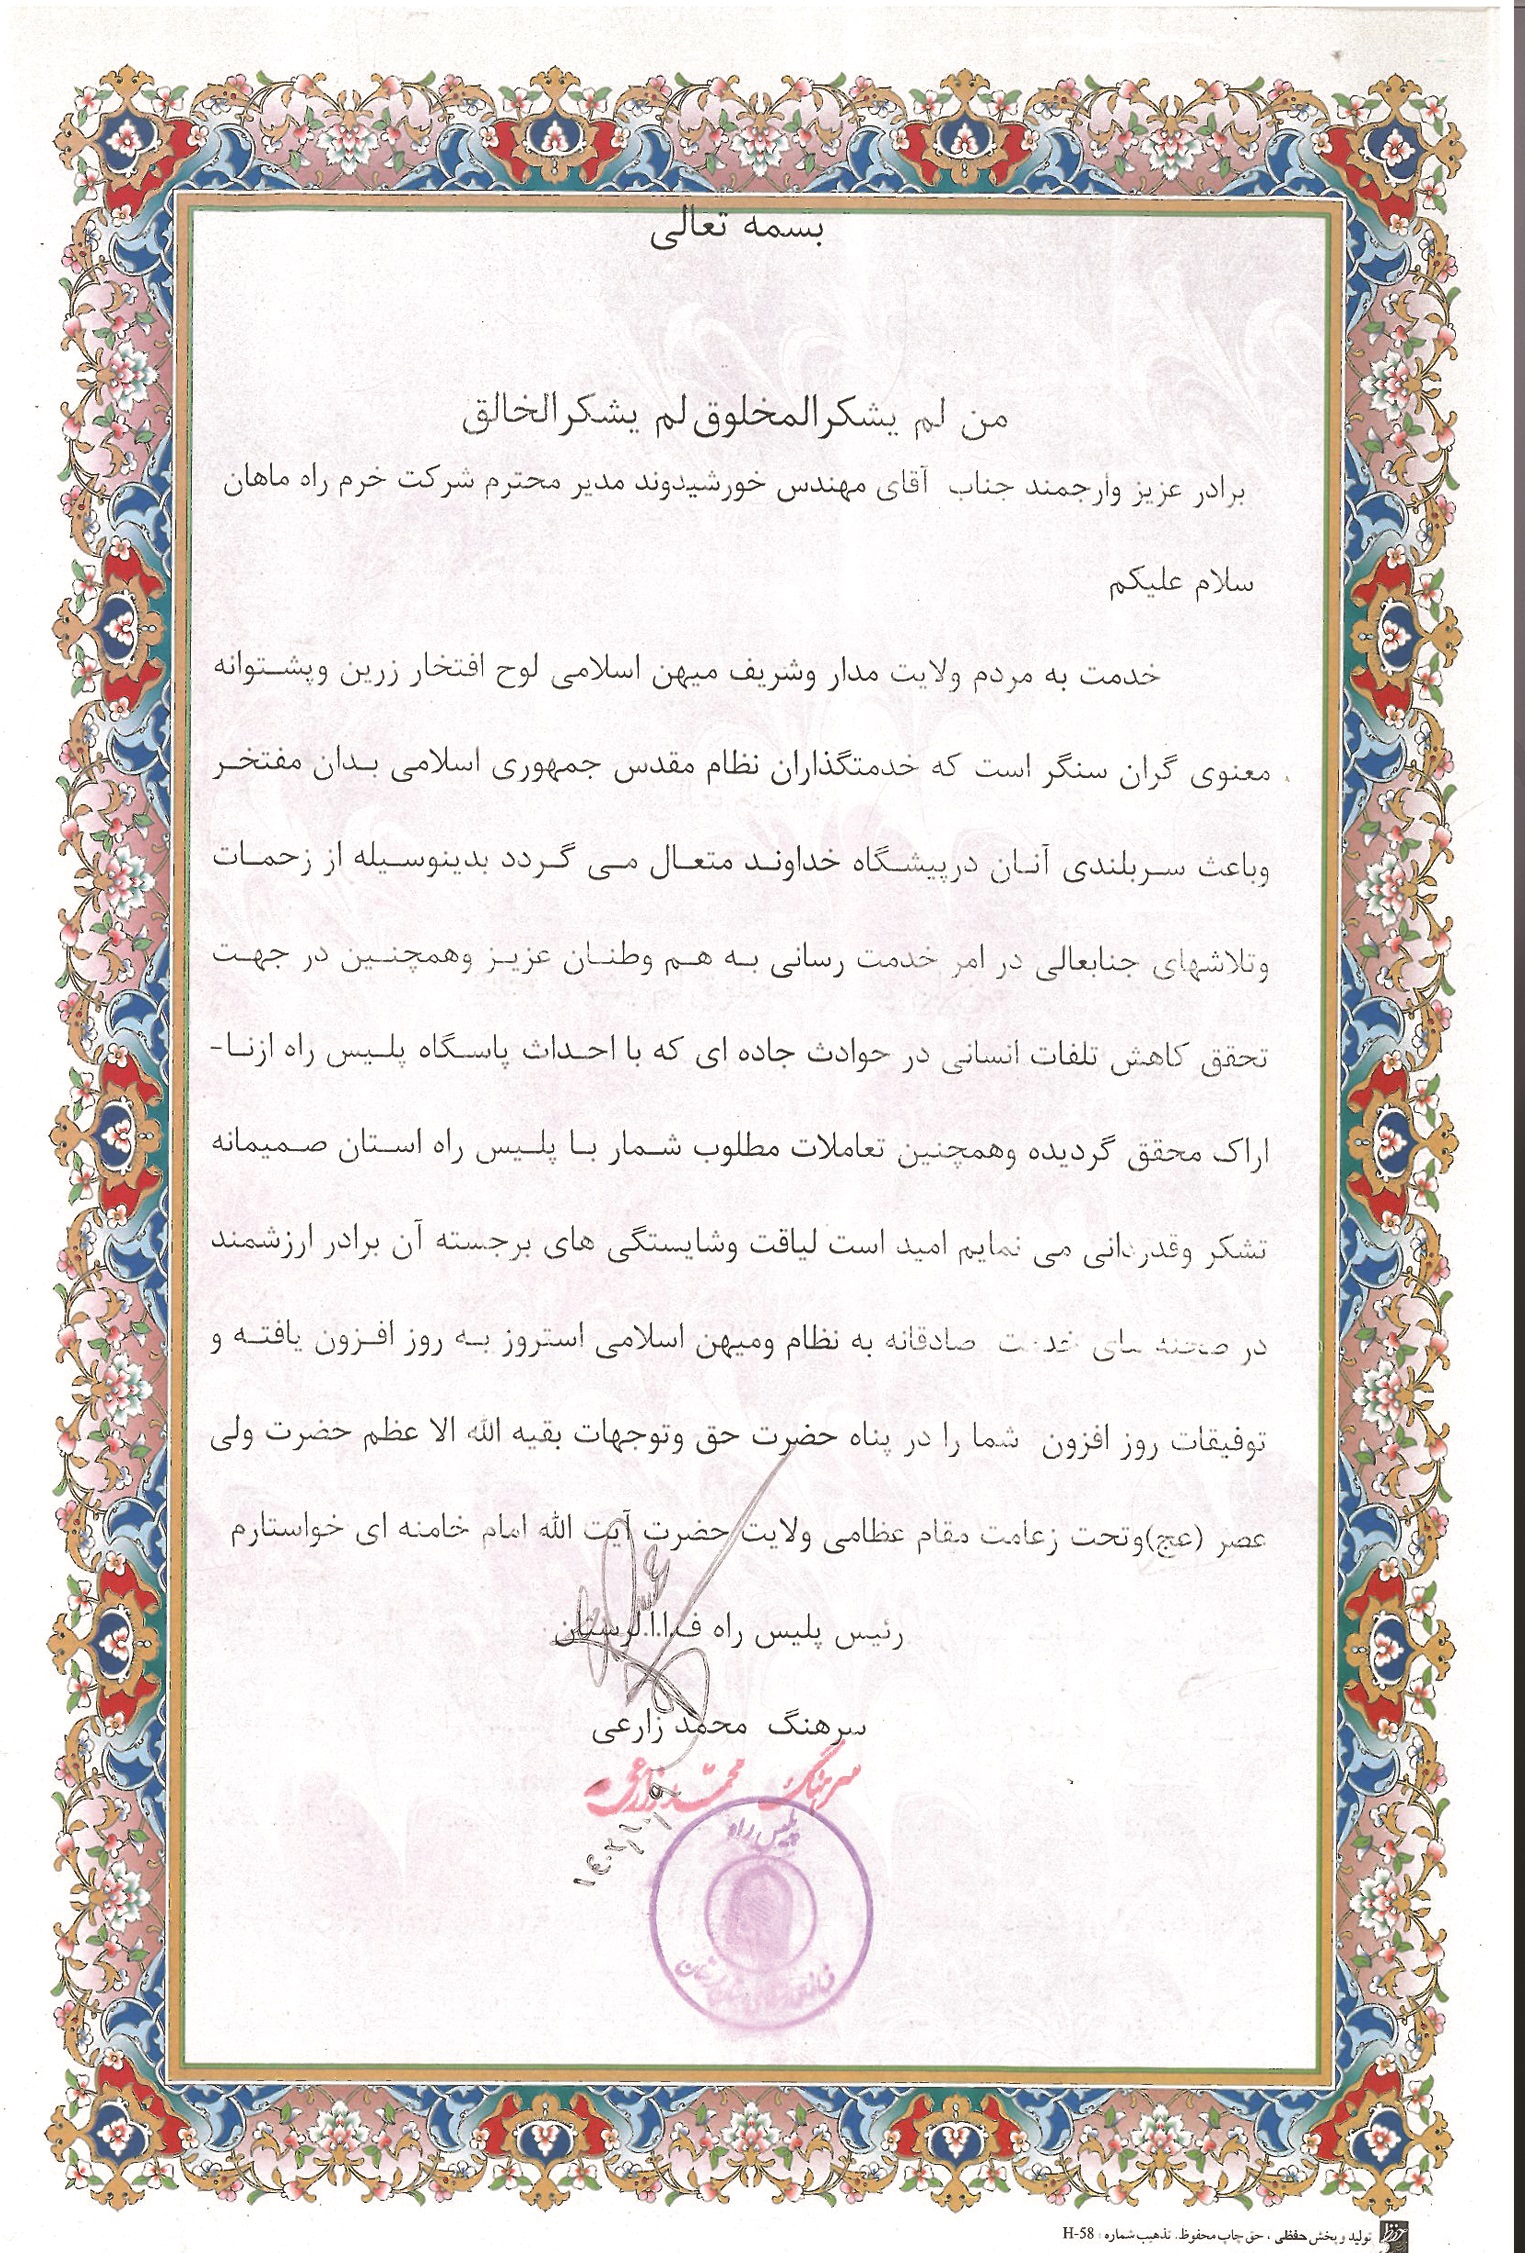 بسمه تعالی
من لم یشکرالمخلوق لم یشکرالخالق
برادر عزیز وارجمند جناب آقای مهندس خورشیدوند مدیر محترم شرکت خرم راه ماهان
سلام علیکم
خدمت به مردم ولایت مدار وشریف میهن اسلامی لوح افتخار زرین وپشتوانه
معنوی گران سنگر است که خدمتگذاران نظام مقدس جمهوری اسلامی بدان مفتخر
وباعث سربلندی آنان درپیشگاه خداوند متعال می گردد بدینوسیله از زحمات
وتلاشهای جنابعالی در امر خدمت رسانی به هم وطنان عزیز وهمچنین در جهت
تحقق کاهش تلفات انسانی در حوادث جاده ای که با احداث پاسگاه پلیس راه ازنا-
اراک محقق گردیده وهمچنین تعاملات مطلوب شمار با پلیس راه استان صمیمانه
تشکر وقدردانی می نمایم امید است لیاقت وشایستگی های برجسته آن برادر ارزشمند
در صحنه های خدمت صادقانه به نظام ومیهن اسلامی استروز به روز افزون یافته و
توفیقات روز افزون شما را در پناه حضرت حق وتوجهات بقیه الله الا عظم حضرت ولی
عصر (عج)وتحت زعامت مقام عظامی ولایت حضرت آیت الله امام خامنه ای خواستارم
رئیس پلیس راه ف.ا.ا.لرستان
سرهنگ محمد زارعی
سرهنگ محمد زارعی
پلیس راه
تولید و پخش حفظی ، حق چاپ محفوظ. تذهیب شماره : H-58